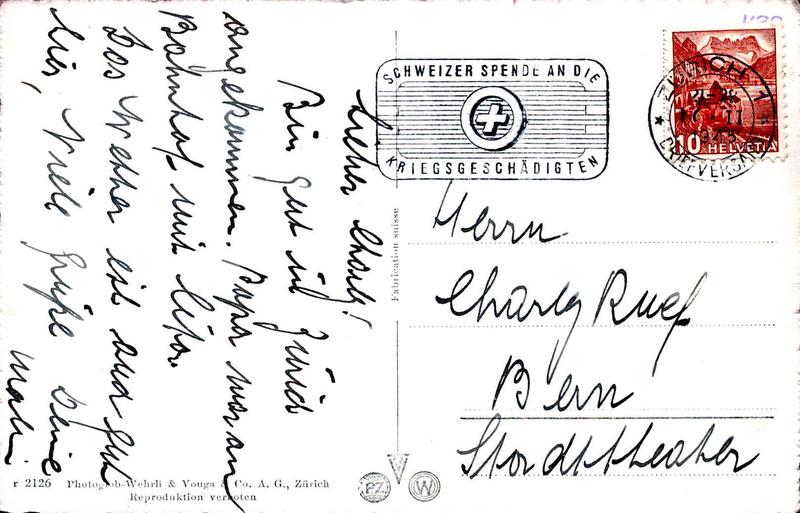 Lieber Charly!
Bin gut in Zürich
angekommen. Papa war am
Bahnhof mit
Das Wetter ist auch gut
hier, Viele Grüße Deine
SCHWEIZER SPENDE AN DIE
KRIEGSGESCHÄDIGTEN
ZÜRICH 1
11
BRIEFVERSAND
10 HELVETIA
Fabrication suisse
Herrn
Charly Ruef
Bern
Stadttheater
r 2126 Photoglob-Wehrli & Vouga & Co. A. G., Zürich
Reproduktion verboten
PZ W